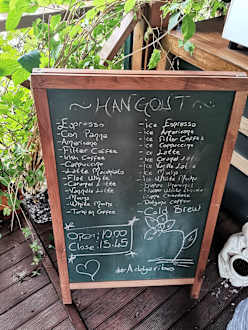 ~ HANGOUT ~
- Espresso
- Con Panna
- Americano
- Filter Coffee
- Irish Coffee
- Cappuccino
- Latte Macchiato
- Flat White
- Caramel Latte
- Vanilla Latte
- Mocha
- White Mocha
- Turkish Coffee
- Ice Espresso
- Ice Americano
- Ice Filter Coffee
- Ice Cappuccino
- Ice Latte
- Ice Caramel Latte
- Ice Vanilla Latte
- Ice Mocha
- Ice White Mocha
- Cold Brew
Open: 10.00
Close: 15.45